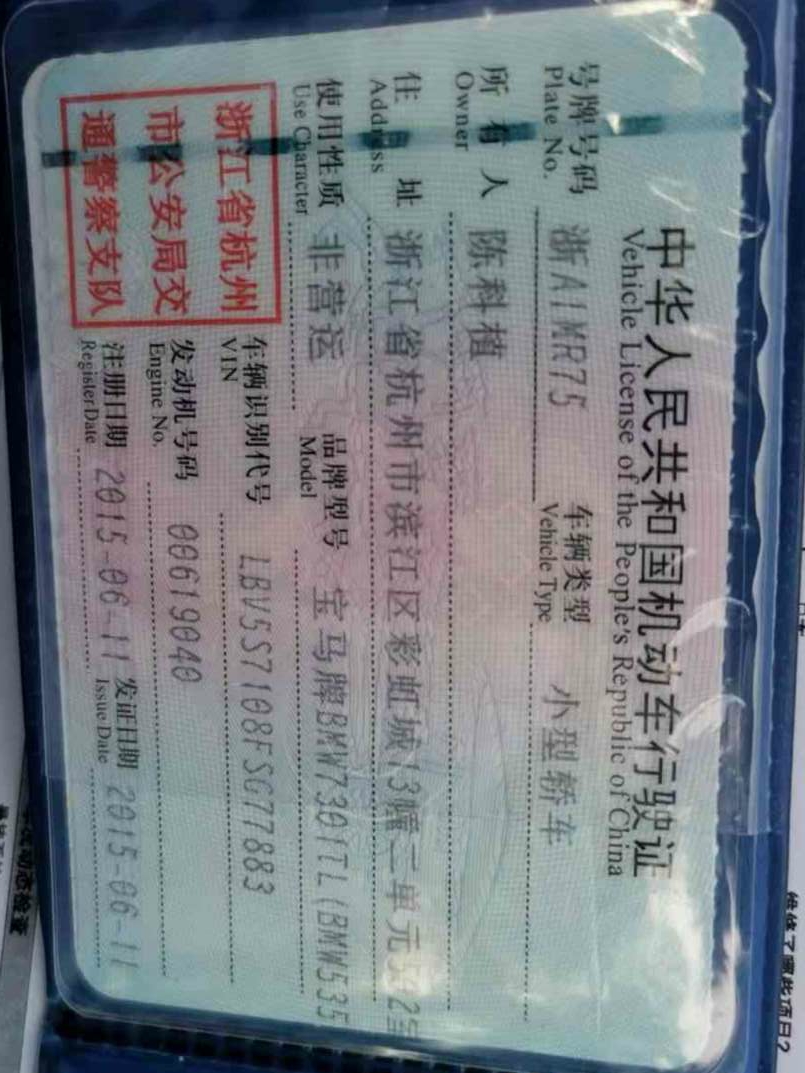 中华人民共和国机动车行驶证
Vehicle License of the People's Republic of China
号牌号码 浙A1MR75 车辆类型 小型轿车
Plate No. Vehicle Type
所有人 陈科植
Owner
住址 浙江省杭州市滨江区彩虹城13幢二单元502室
Address
使用性质 非营运 品牌型号 宝马牌BMW7301TL(BMW535
Use Character Model
浙江省杭州
市公安局交
通警察支队
车辆识别代号 LBV5S7108FSG77883
VIN
发动机号码 00619040
Engine No.
注册日期 2015-06-11 发证日期 2015-06-11
Register Date Issue Date
维修了哪些项目?